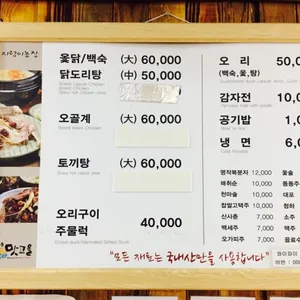 옻닭/백숙 (大) 60,000
닭도리탕 (中) 50,000
오골계 (大) 60,000
토끼탕 (大) 60,000
오리구이
주물럭 40,000
오 리 50,0
(백숙,옻,탕)
감자전 10,00
공기밥 1,0
냉 면 6,0
명작복분자 12,000 옻술
매취순 10,000 동동주
천마술 10,000
찹쌀고택주 10,000 청하
신사춘 7,000 소주
백세주 7,000 맥주
오가피주 7,000 음료수
"모든 재료는 국내산만을 사용합니다"
와이파이
비번 : 000
맛고을